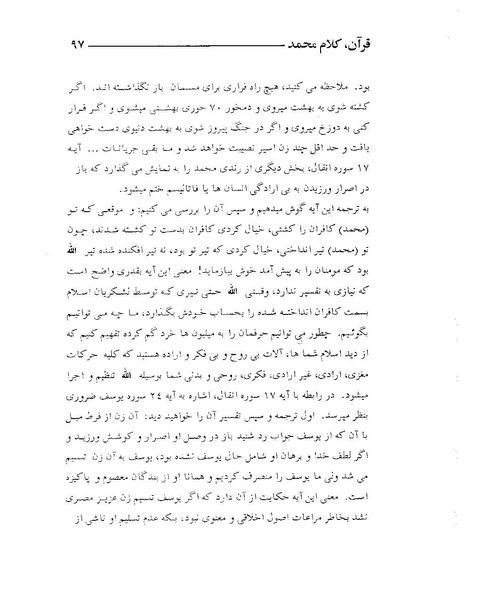 قرآن، کلام محمد ۹۷
بود. ملاحظه می کنید، هیچ راه فراری برای مسلمان باز نگذاشته اند. اگر
کشته شوی به بهشت میروی و دمخور ۷۰ حوری بهشتی میشوی و اگر فرار
کنی به دوزخ میروی و اگر در جنگ پیروز شوی به بهشت دنیوی دست خواهی
یافت و حد اقل چند زن اسیر نصیبت خواهد شد و ما بقی جریانات ... آیه
۱۷ سوره انفال، بخش دیگری از رندی محمد را به نمایش می گذارد که باز
در اصرار ورزیدن به بی ارادگی انسان ها یا فاتالیسم ختم میشود.
به ترجمه این آیه گوش میدهیم و سپس آن را بررسی می کنیم: و موقعی که تو
(محمد) کافران را کشتی، خیال کردی کافران بدست تو کشته شدند، چون
تو (محمد) تیر انداختی، خیال کردی که تیر تو بود، نه تیر افکنده شده تیر الله
بود که مومنان را به پیش آمد خوش بیازماید! معنی این آیه بقدری واضح است
که نیازی به تفسیر ندارد، وقتی الله حتی تیری که توسط لشکریان اسلام
بسمت کافران انداخته شده را بحساب خودش بگذارد، ما چه می توانیم
بگوئیم. چطور می توانیم حرفمان را به میلیون ها خرد گم کرده تفهیم کنیم که
از دید اسلام شما ها، آلات بی روح و بی فکر و اراده هستید که کلیه حرکات
مغزی، ارادی، غیر ارادی، فکری، روحی و بدنی شما بوسیله الله تنظیم و اجرا
میشود. در رابطه با آیه ۱۷ سوره انفال، اشاره به آیه ۲۴ سوره یوسف ضروری
بنظر میرسد. اول ترجمه و سپس تفسیر آن را خواهید دید: آن زن از فرط میل
با آن که از یوسف جواب رد شنید باز در وصل او اصرار و کوشش ورزید و
اگر لطف خدا و برهان او شامل حال یوسف نشده بود، یوسف به آن زن تسیم
می شد ولی ما یوسف را منصرف کردیم و همانا او از بندگان معصوم و پاکیزه
است. معنی این آیه حکایت از آن دارد که اگر یوسف تسیم زن عزیز مصری
نشد بخاطر مراعات اصول اخلاقی و معنوی نبود، بلکه عدم تسلیم او ناشی از